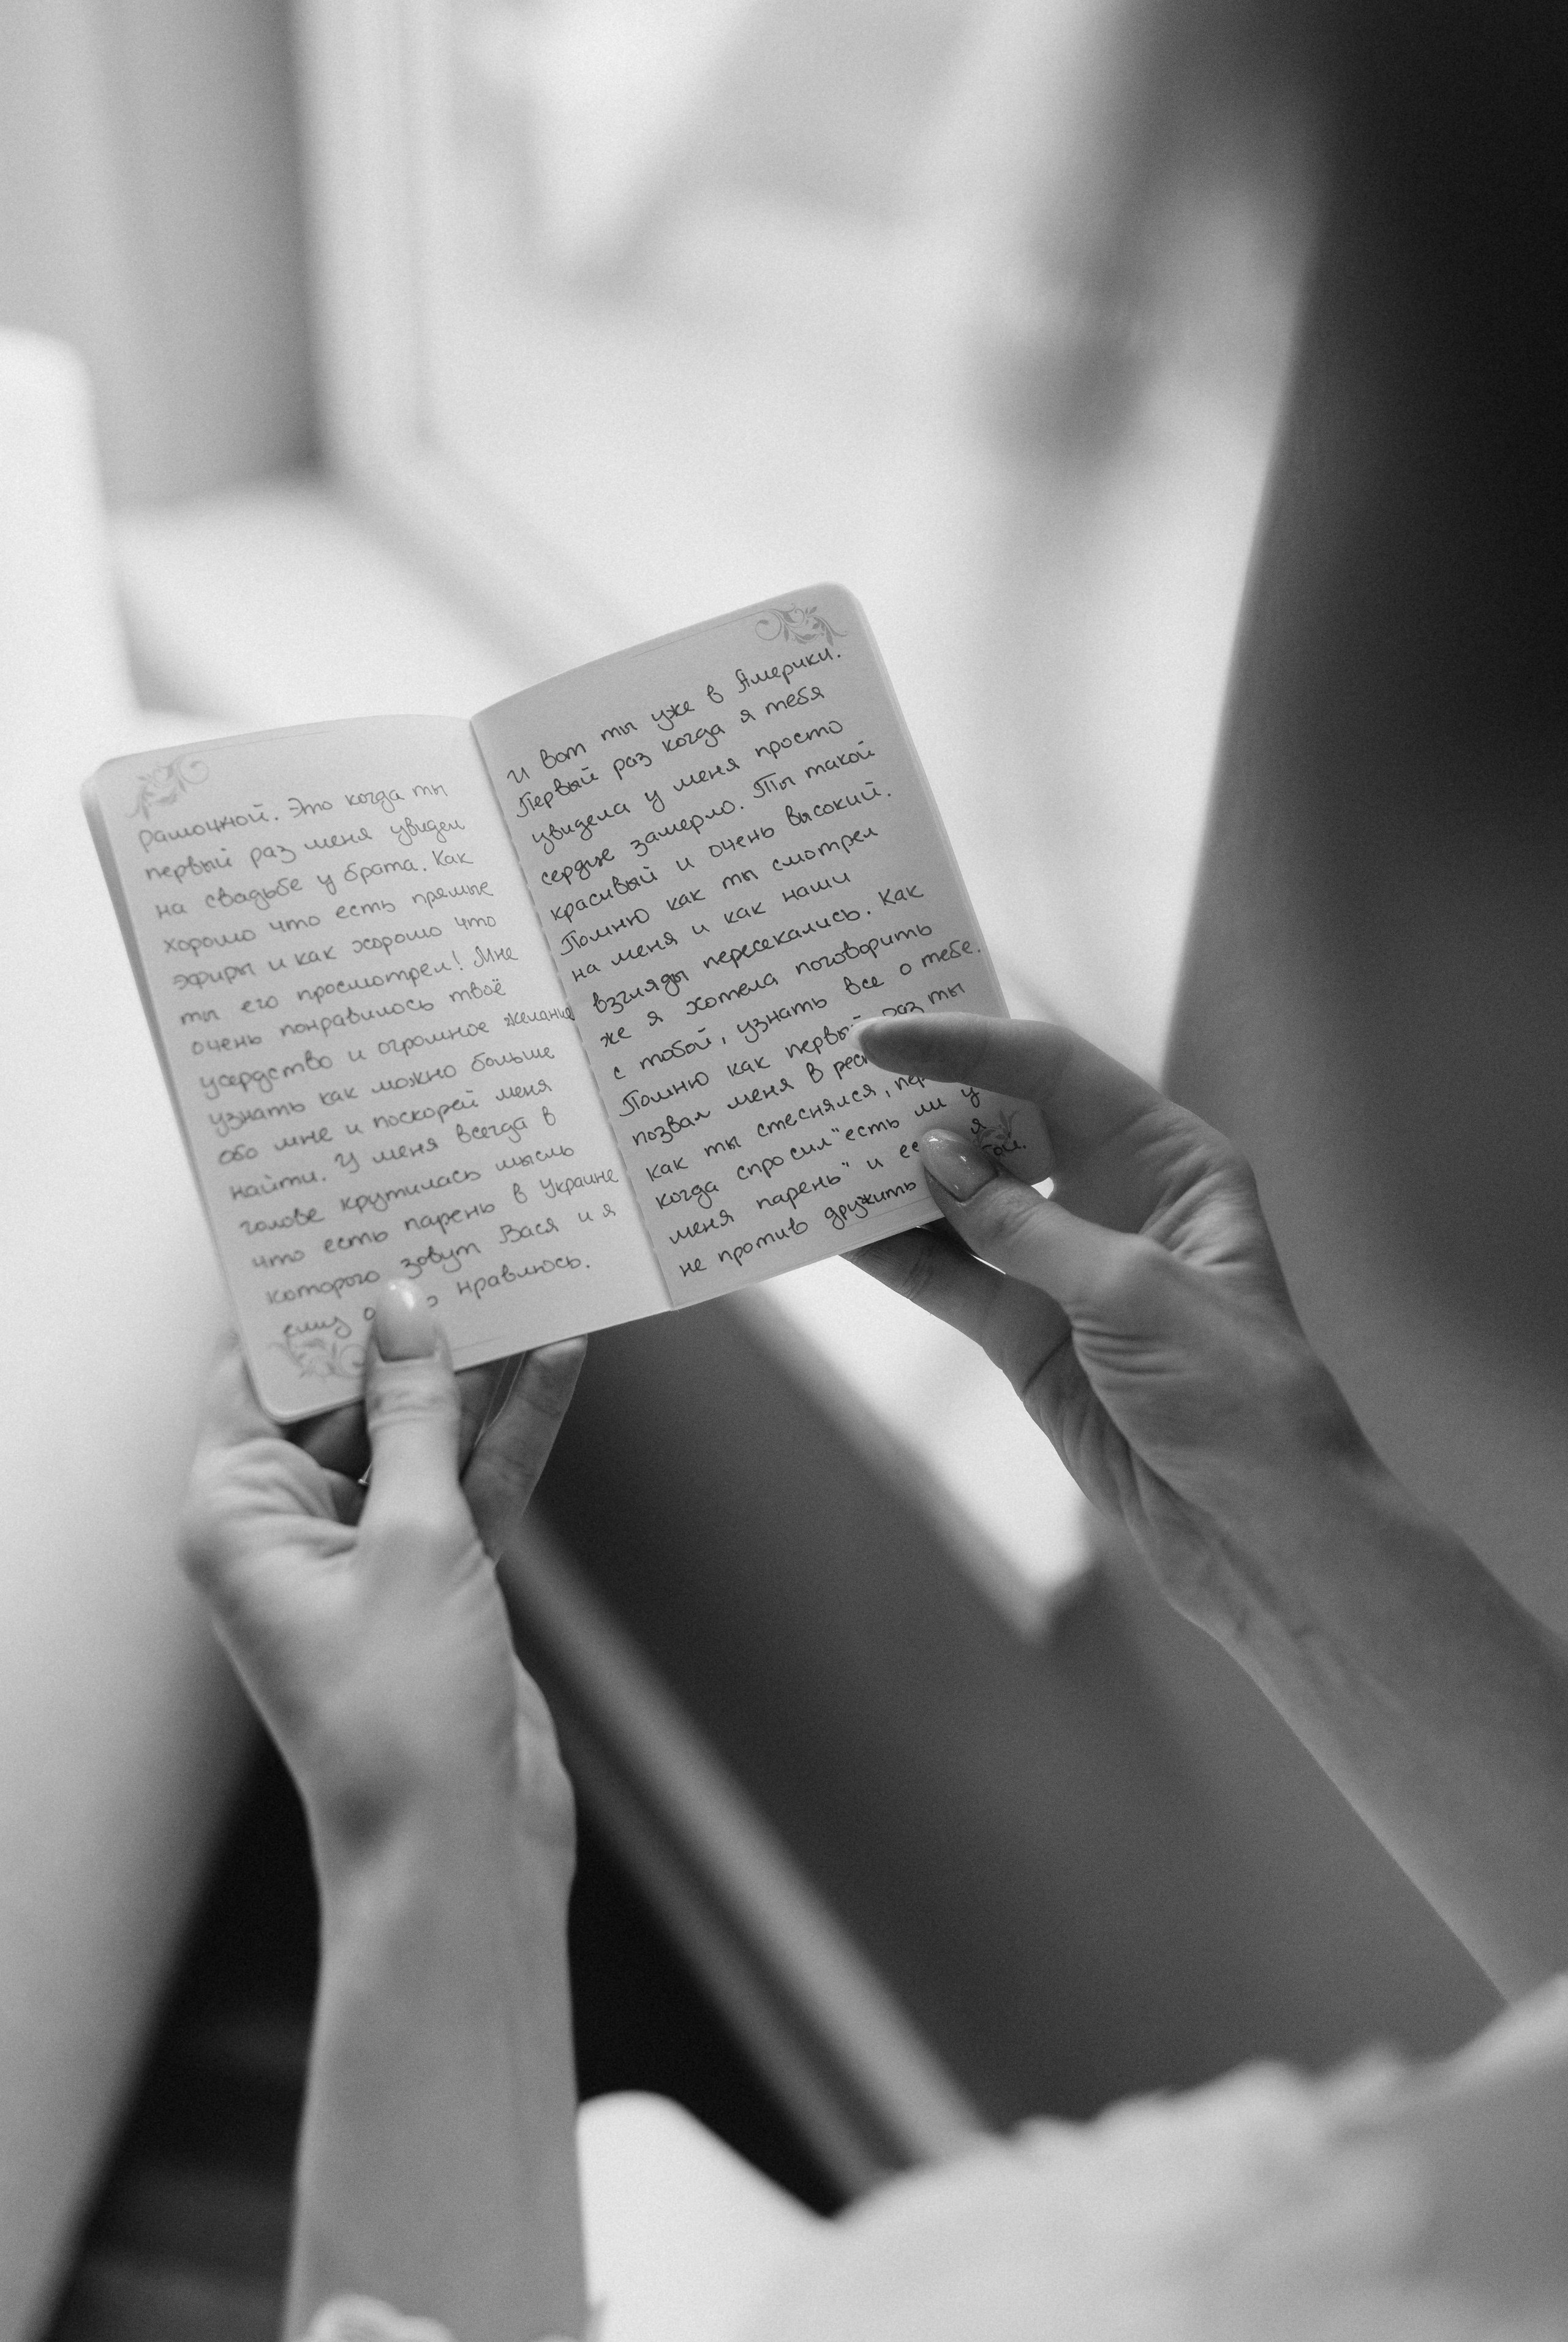 рашоцкой. Это когда ты
первый раз меня увидел
на свадьбе у брата. Как
хорошо что есть прямые
эфиры и как хорошо что
ты его просмотрел! Мне
очень понравилось твоё
усердство и огромное желание
узнать как можно больше
обо мне и поскорей меня
найти. У меня всегда в
голове крутилась мысль
что есть парень в Украине
которого зовут Вася и я
ему нравлюсь.
И вот ты уже в Америки.
Первый раз когда я тебя
увидела у меня просто
сердце замерло. Ты такой
красивый и очень высокий.
Помню как ты смотрел
на меня и как наши
взгляды пересекались. Как
же я хотела поговорить
с тобой, узнать все о тебе.
Помню как первый раз ты
позвал меня в
как ты стеснялся,
когда спросил "есть ли у
меня парень" и я
не против дружить